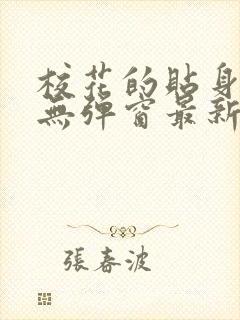 校花的貼身
無彈窗最新
張春波